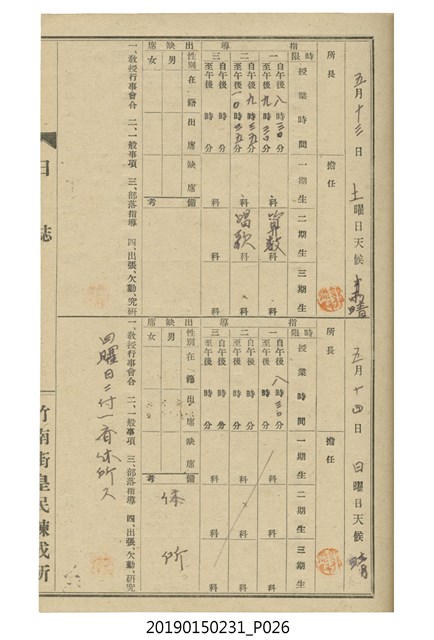 五月十三日 土曜日 天候 晴
所長 擔任
指導
時限 授業時間 一期生 二期生 三期生
一 自午後八時三〇分 至午後九時三〇分 科 算数 科 科
二 自午後九時三五分 至午後一〇時三五分 科 唱歌 科 科
三 自午後 時 分 至午後 時 分 科 科 科
出缺席
性別 在籍 出席 缺席 備考
男
女
一、教授行事會合 二、一般事項 三、部落指導 四、出張、欠勤、研究
五月十四日 日曜日 天候 晴
所長 擔任
指導
時限 授業時間 一期生 二期生 三期生
一 自午後八時三〇分 至午後 時 分 科 科 科
二 自午後 時 分 至午後 時 分 科 科 科
三 自午後 時 分 至午後 時 分 科 科 科
出缺席
性別 在籍 出席 缺席 備考
男
女
休所
一、教授行事會合 二、一般事項 三、部落指導 四、出張、欠勤、研究
日曜日ニ付一斉休所ス
日誌
竹南街皇民鍊成所
20190150231_P026